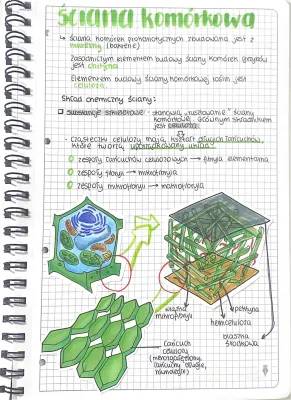 ściana komórkowa
↳ ściana komórek prokariotycznych zbudowana jest z
mureiny (bakterie)
Zasadniczym elementem budowy ściany komórek grzybów
jest chityna
Elementem budowy ściany komórkowej roślin jest
celuloza.
Skład chemiczny ściany:
substancje szkieletowe - stanowią "rusztowanie" ściany
komórkowej, głównym składnikiem
jest celuloza
cząsteczki celulozy mają kształt długich łańcuchów,
które tworzą uporządkowany układ
zespoły łańcuchów celulozowych → fibryla elementarna
zespoły fibryli → mikrofibryla
zespoły mikrofibryli → makrofibryla
wiązka
mikrofibryli
pektyna
hemiceluloza
blaszka
środkowa
łańcuch
celulozy
(nierozgałęziony,
łańcuchy długie,
równoległe)